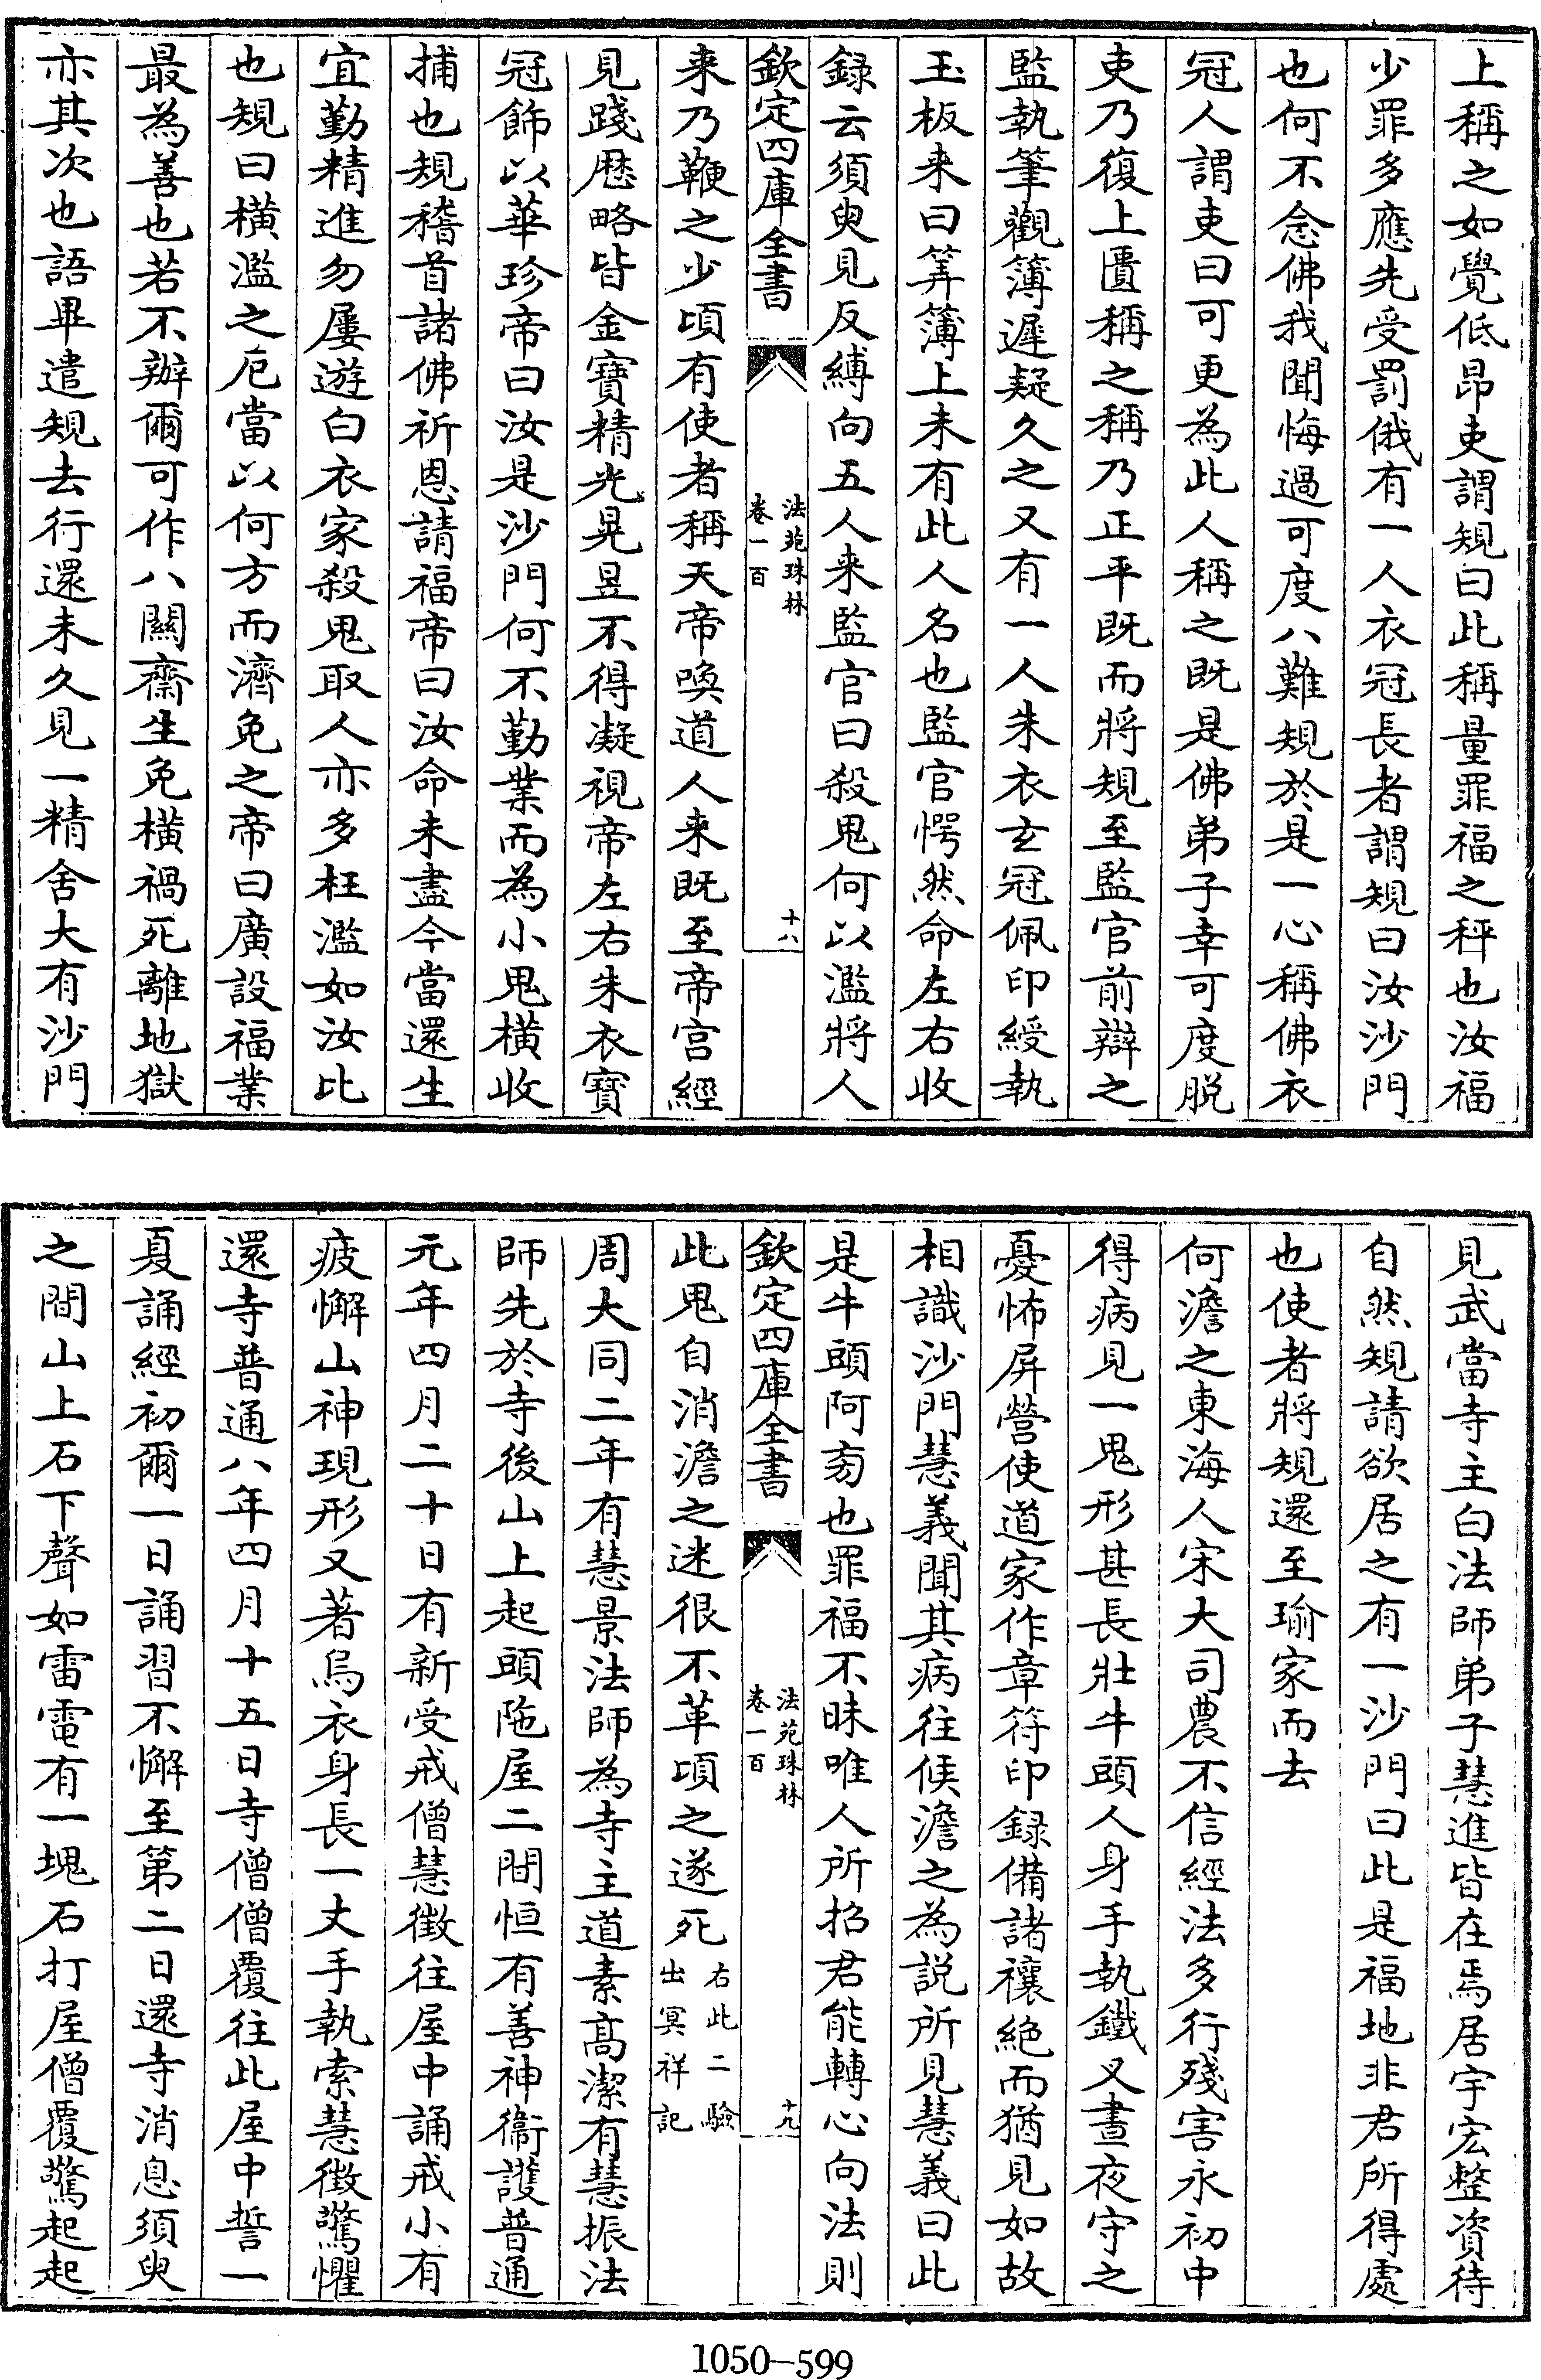 上稱之如覺低昂吏謂規曰此稱量罪福之秤也汝福
少罪多應先受罰俄有一人衣冠長者謂規曰汝沙門
也何不念佛我聞悔過可度八難規於是一心稱佛衣
冠人謂吏曰可更為此人稱之既是佛弟子幸可度脱
吏乃復上匱稱之稱乃正平既而將規至監官前辯之
監執筆觀簿遲疑久之又有一人朱衣玄冠佩印綬執
玉板来曰筭簿上未有此人名也監官愕然命左右收
録云須臾見反縛向五人来監官曰殺鬼何以濫將人
欽定四庫全書
法苑珠林
卷一百
十八
来乃鞭之少頃有使者稱天帝喚道人来既至帝宫經
見踐歴略皆金寳精光晃昱不得凝視帝左右朱衣寳
冠飾以華珍帝曰汝是沙門何不勤業而為小鬼横收
捕也規稽首諸佛祈恩請福帝曰汝命未盡今當還生
宜勤精進勿屢遊白衣家殺鬼取人亦多枉濫如汝比
也規曰横濫之厄當以何方而濟免之帝曰廣設福業
最為善也若不辦爾可作八關齋生免横禍死離地獄
亦其次也語畢遣規去行還未久見一精舍大有沙門
見武當寺主白法師弟子慧進皆在焉居宇宏整資待
自然規請欲居之有一沙門曰此是福地非君所得處
也使者將規還至瑜家而去
何澹之東海人宋大司農不信經法多行殘害永初中
得病見一鬼形甚長壯牛頭人身手執鐵叉晝夜守之
憂怖屏營使道家作章符印録備諸禳絶而猶見如故
相識沙門慧義聞其病往候澹之為説所見慧義曰此
是牛頭阿旁也罪福不昧唯人所招君能轉心向法則
欽定四庫全書
法苑珠林
卷一百
十九
此鬼自消澹之迷很不革頃之遂死右此二驗出冥祥記
周大同二年有慧景法師為寺主道素髙潔有慧振法
師先於寺後山上起頭陁屋二間恒有善神衞護普通
元年四月二十日有新受戒僧慧徵往屋中誦戒小有
疲懈山神現形又著烏衣身長一丈手執索慧徵驚懼
還寺普通八年四月十五日寺僧僧覆往此屋中誓一
夏誦經初爾一日誦習不懈至第二日還寺消息須臾
之間山上石下聲如雷電有一塊石打屋僧覆驚起起
1050-599